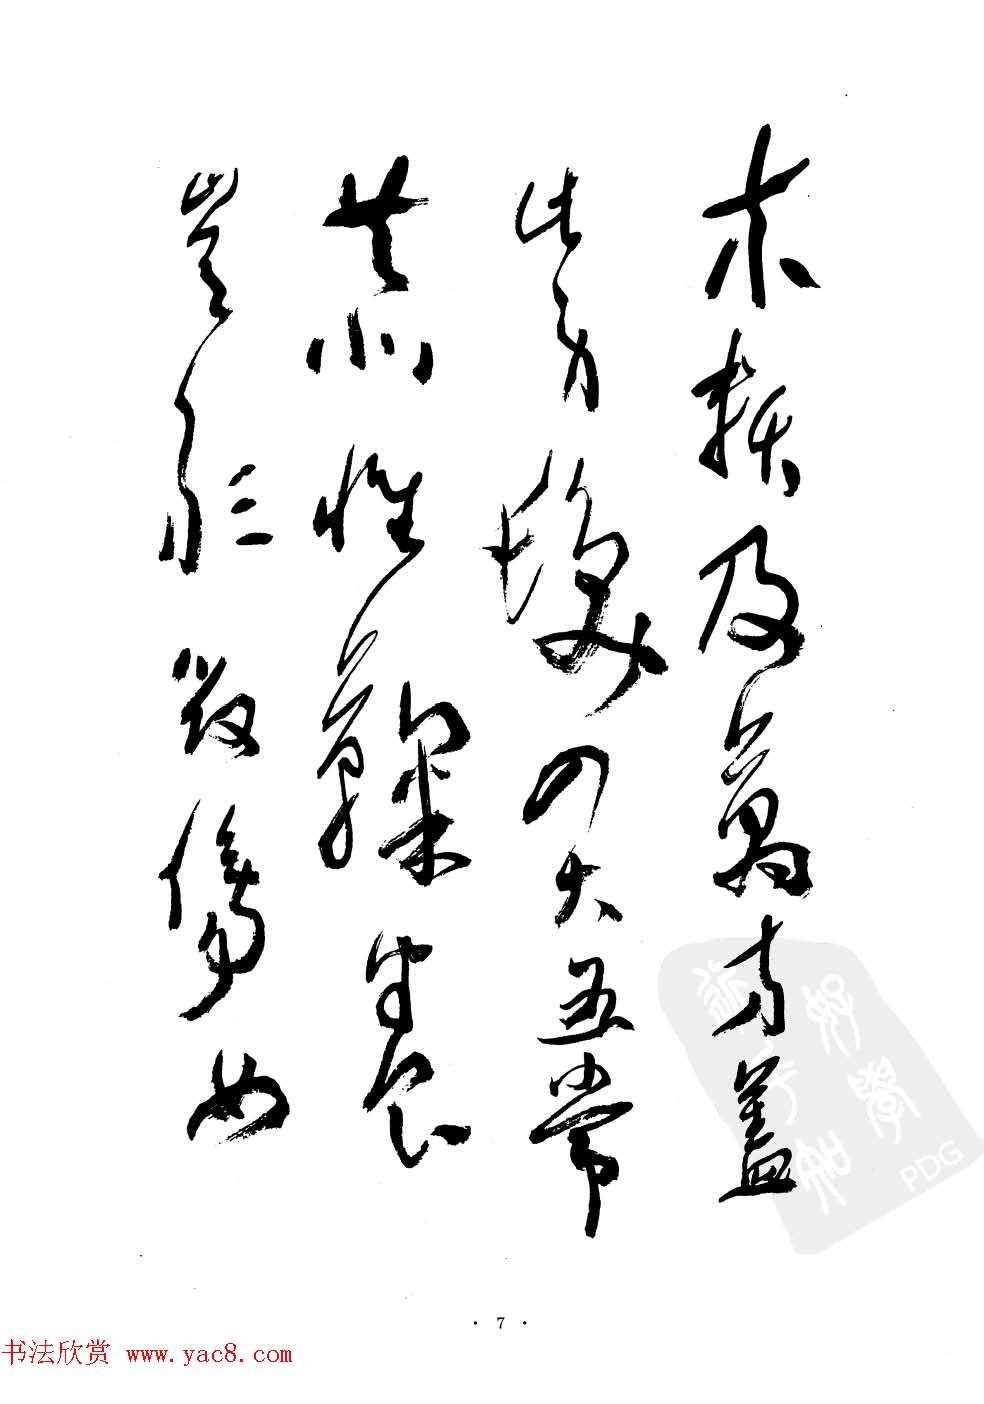 木賴及萬方蓋
此身髮四大五常
恭惟鞠養
豈敢毀傷女
PDG
· 7 ·
书法欣赏 www.yac8.com